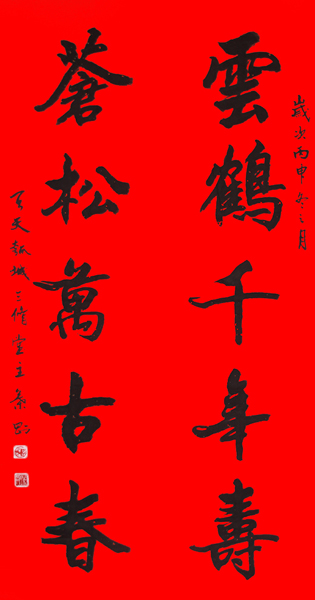 歲次丙申冬之月
雲鶴千年壽
蒼松萬古春
三信室主